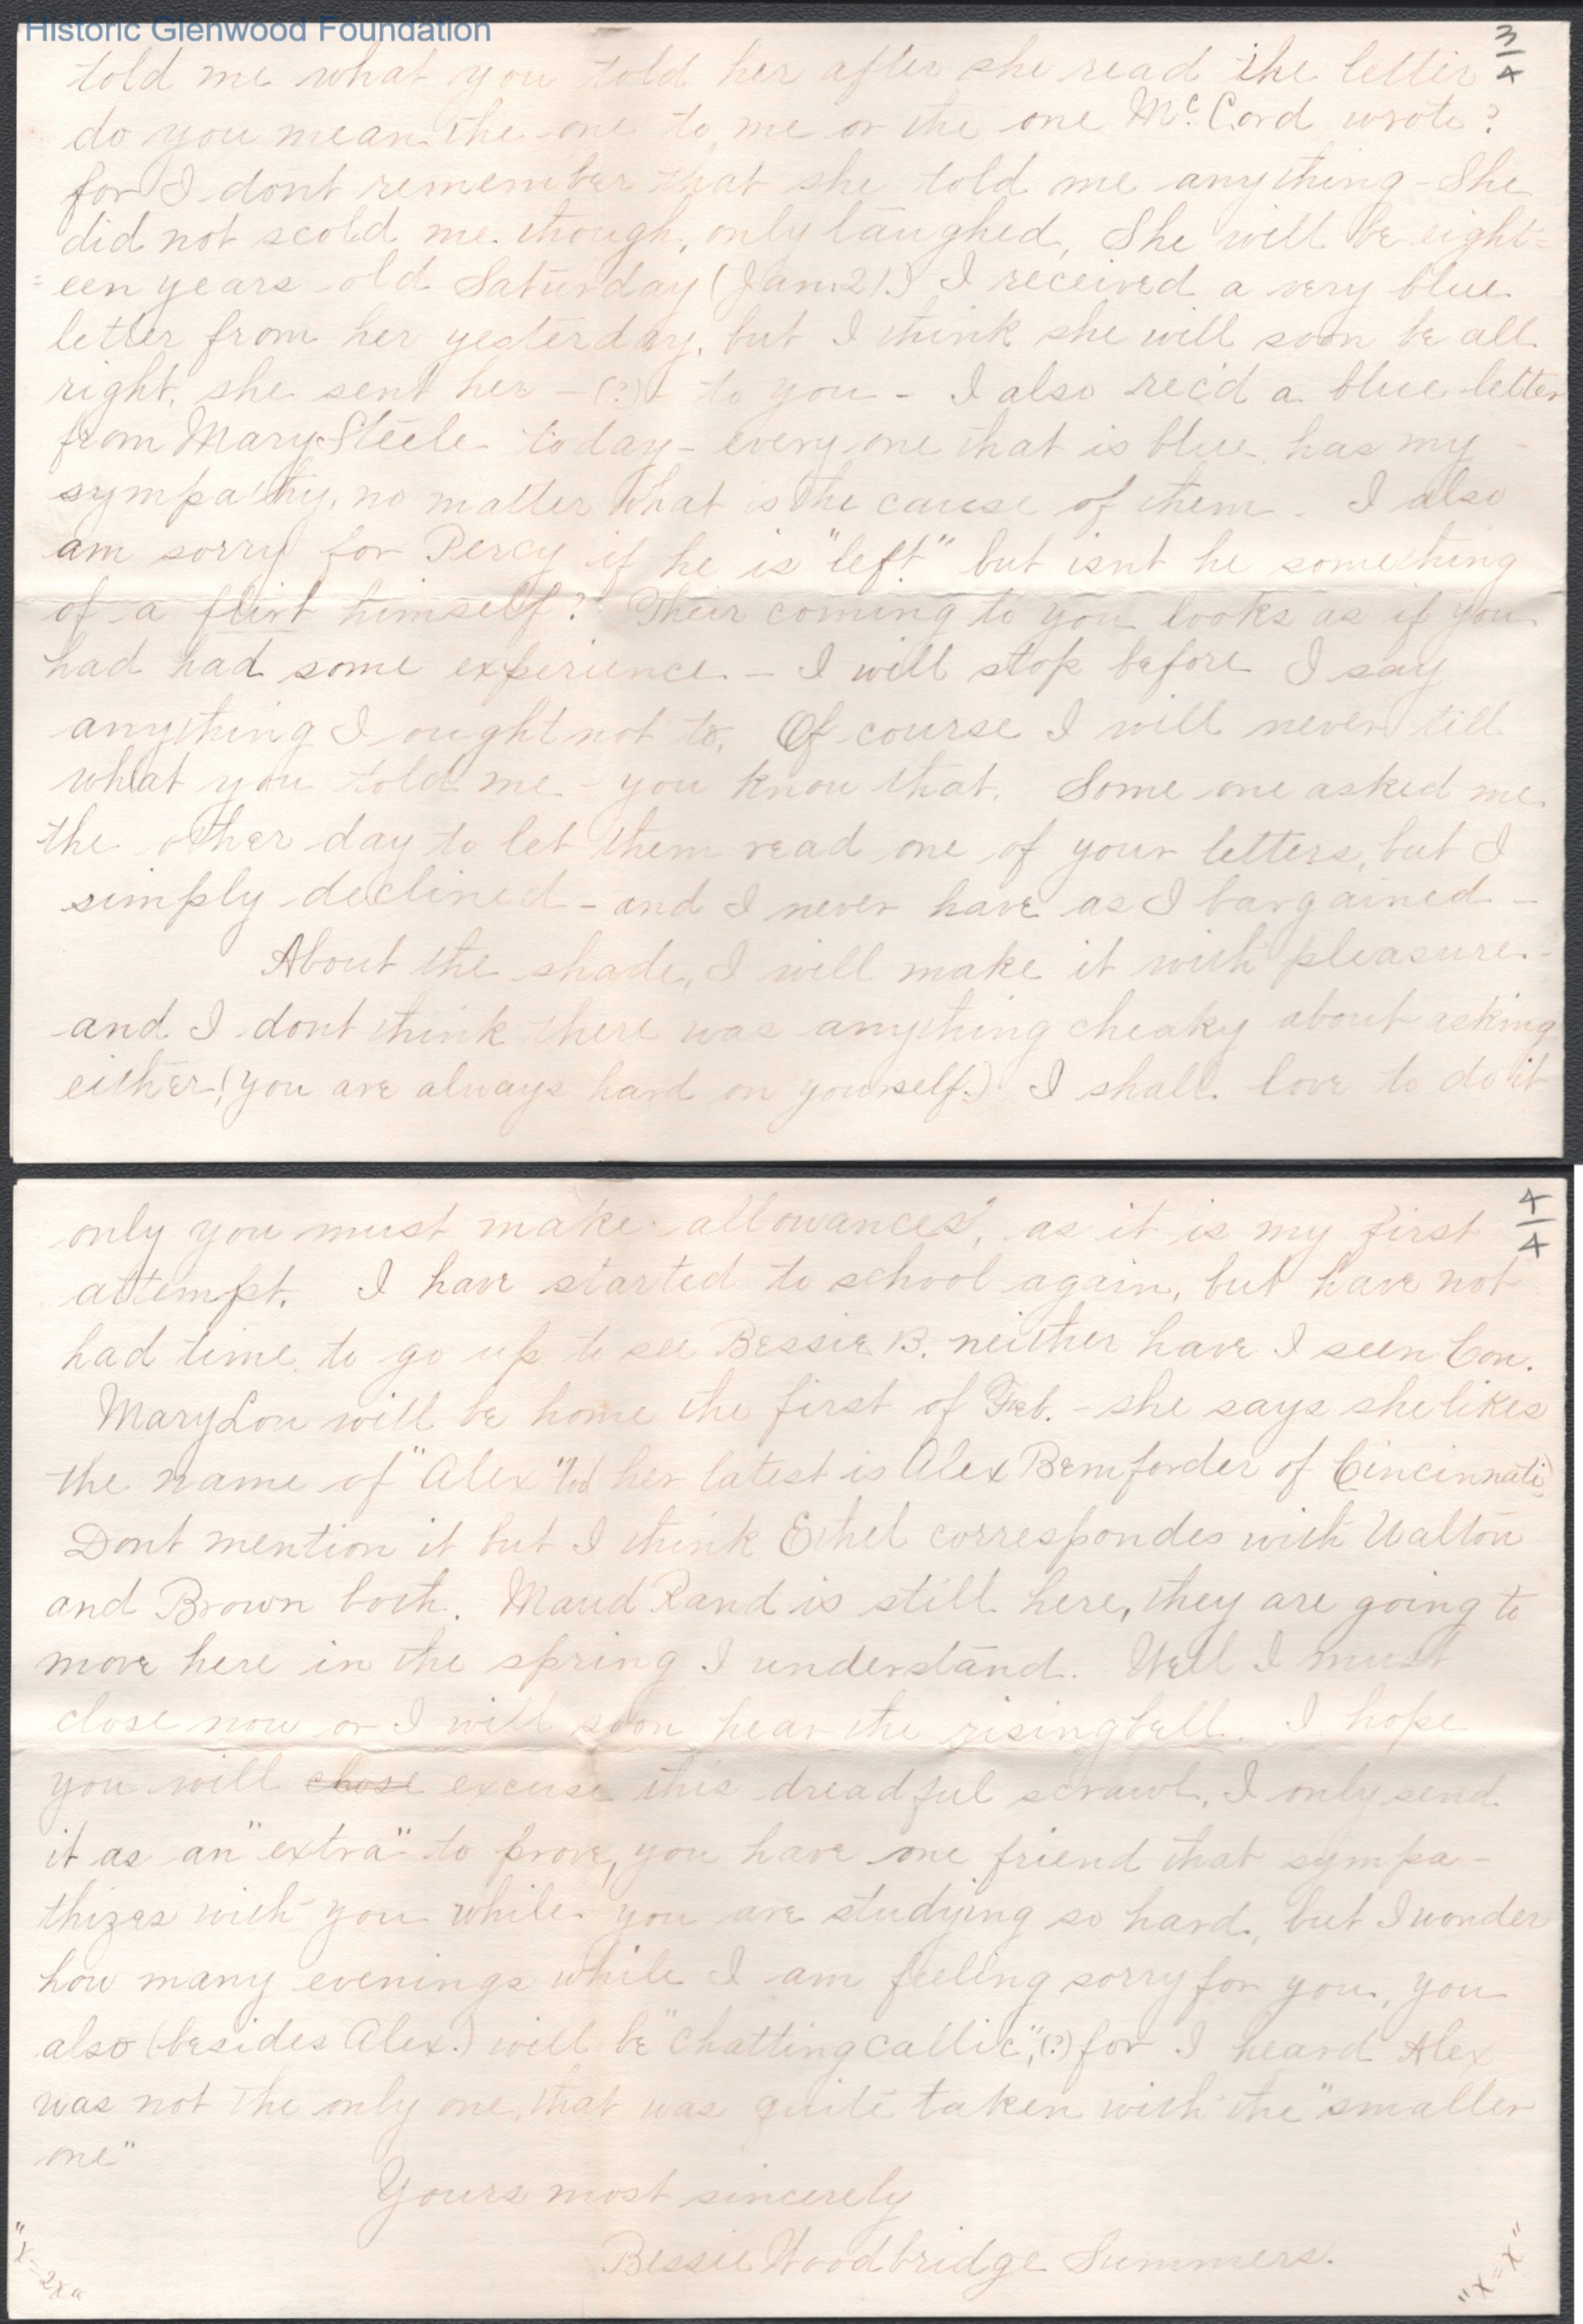 Historic Glenwood Foundation
3/4
told me what you told her after she read the letter
do you mean the one to me or the one Mc. Cord wrote?
for I dont remember that she told me anything - She
did not scold me though, only laughed, She will be eight=
=een years old Saturday (Jan. 21.) I received a very blue
letter from her yesterday, but I think she will soon be all
right, she sent her - (?) - to you - I also rec'd a blue letter
from Mary Steele today - every one that is blue has my -
sympathy, no matter what is the cause of them. I also
am sorry for Percy if he is "left" but isnt he something
of a flirt himself? Their coming to you looks as if you
had had some experience - I will stop before I say
anything I ought not to, Of course I will never till
what you told me - you know that. Some one asked me
the other day to let them read one of your letters, but I
simply declined - and I never have as I bargained -
About the shade, I will make it with pleasure -
and I dont think there was anything cheaky about asking
either, (you are always hard on yourself.) I shall love to do it
4/4
only you must make "allowances", as it is my first
attempt. I have started to school again, but have not
had time to go up to see Bessie B. neither have I seen Con.
Mary Lou will be home the first of Feb. - she says she likes
the name of "Alex" her latest is Alex Bemforder of Cincinnati
Dont mention it but I think Ethel correspondes with Walton
and Brown both. Maud Rand is still here, they are going to
move here in the spring I understand. Well I must
close now or I will soon hear the rising bell. I hope
you will close excuse this dreadful scrawl, I only send
it as an "extra" to prove, you have one friend that sympa-
thizes with you while you are studying so hard, but I wonder
how many evenings while I am feeling sorry for you, you
also (besides Alex.) will be "Chatting callie", (?) for I heard Alex
was not the only one, that was quite taken with the "smaller
one"
Yours most sincerely
Bessie Woodbridge Summers.
"x = 2x"
"x = x"